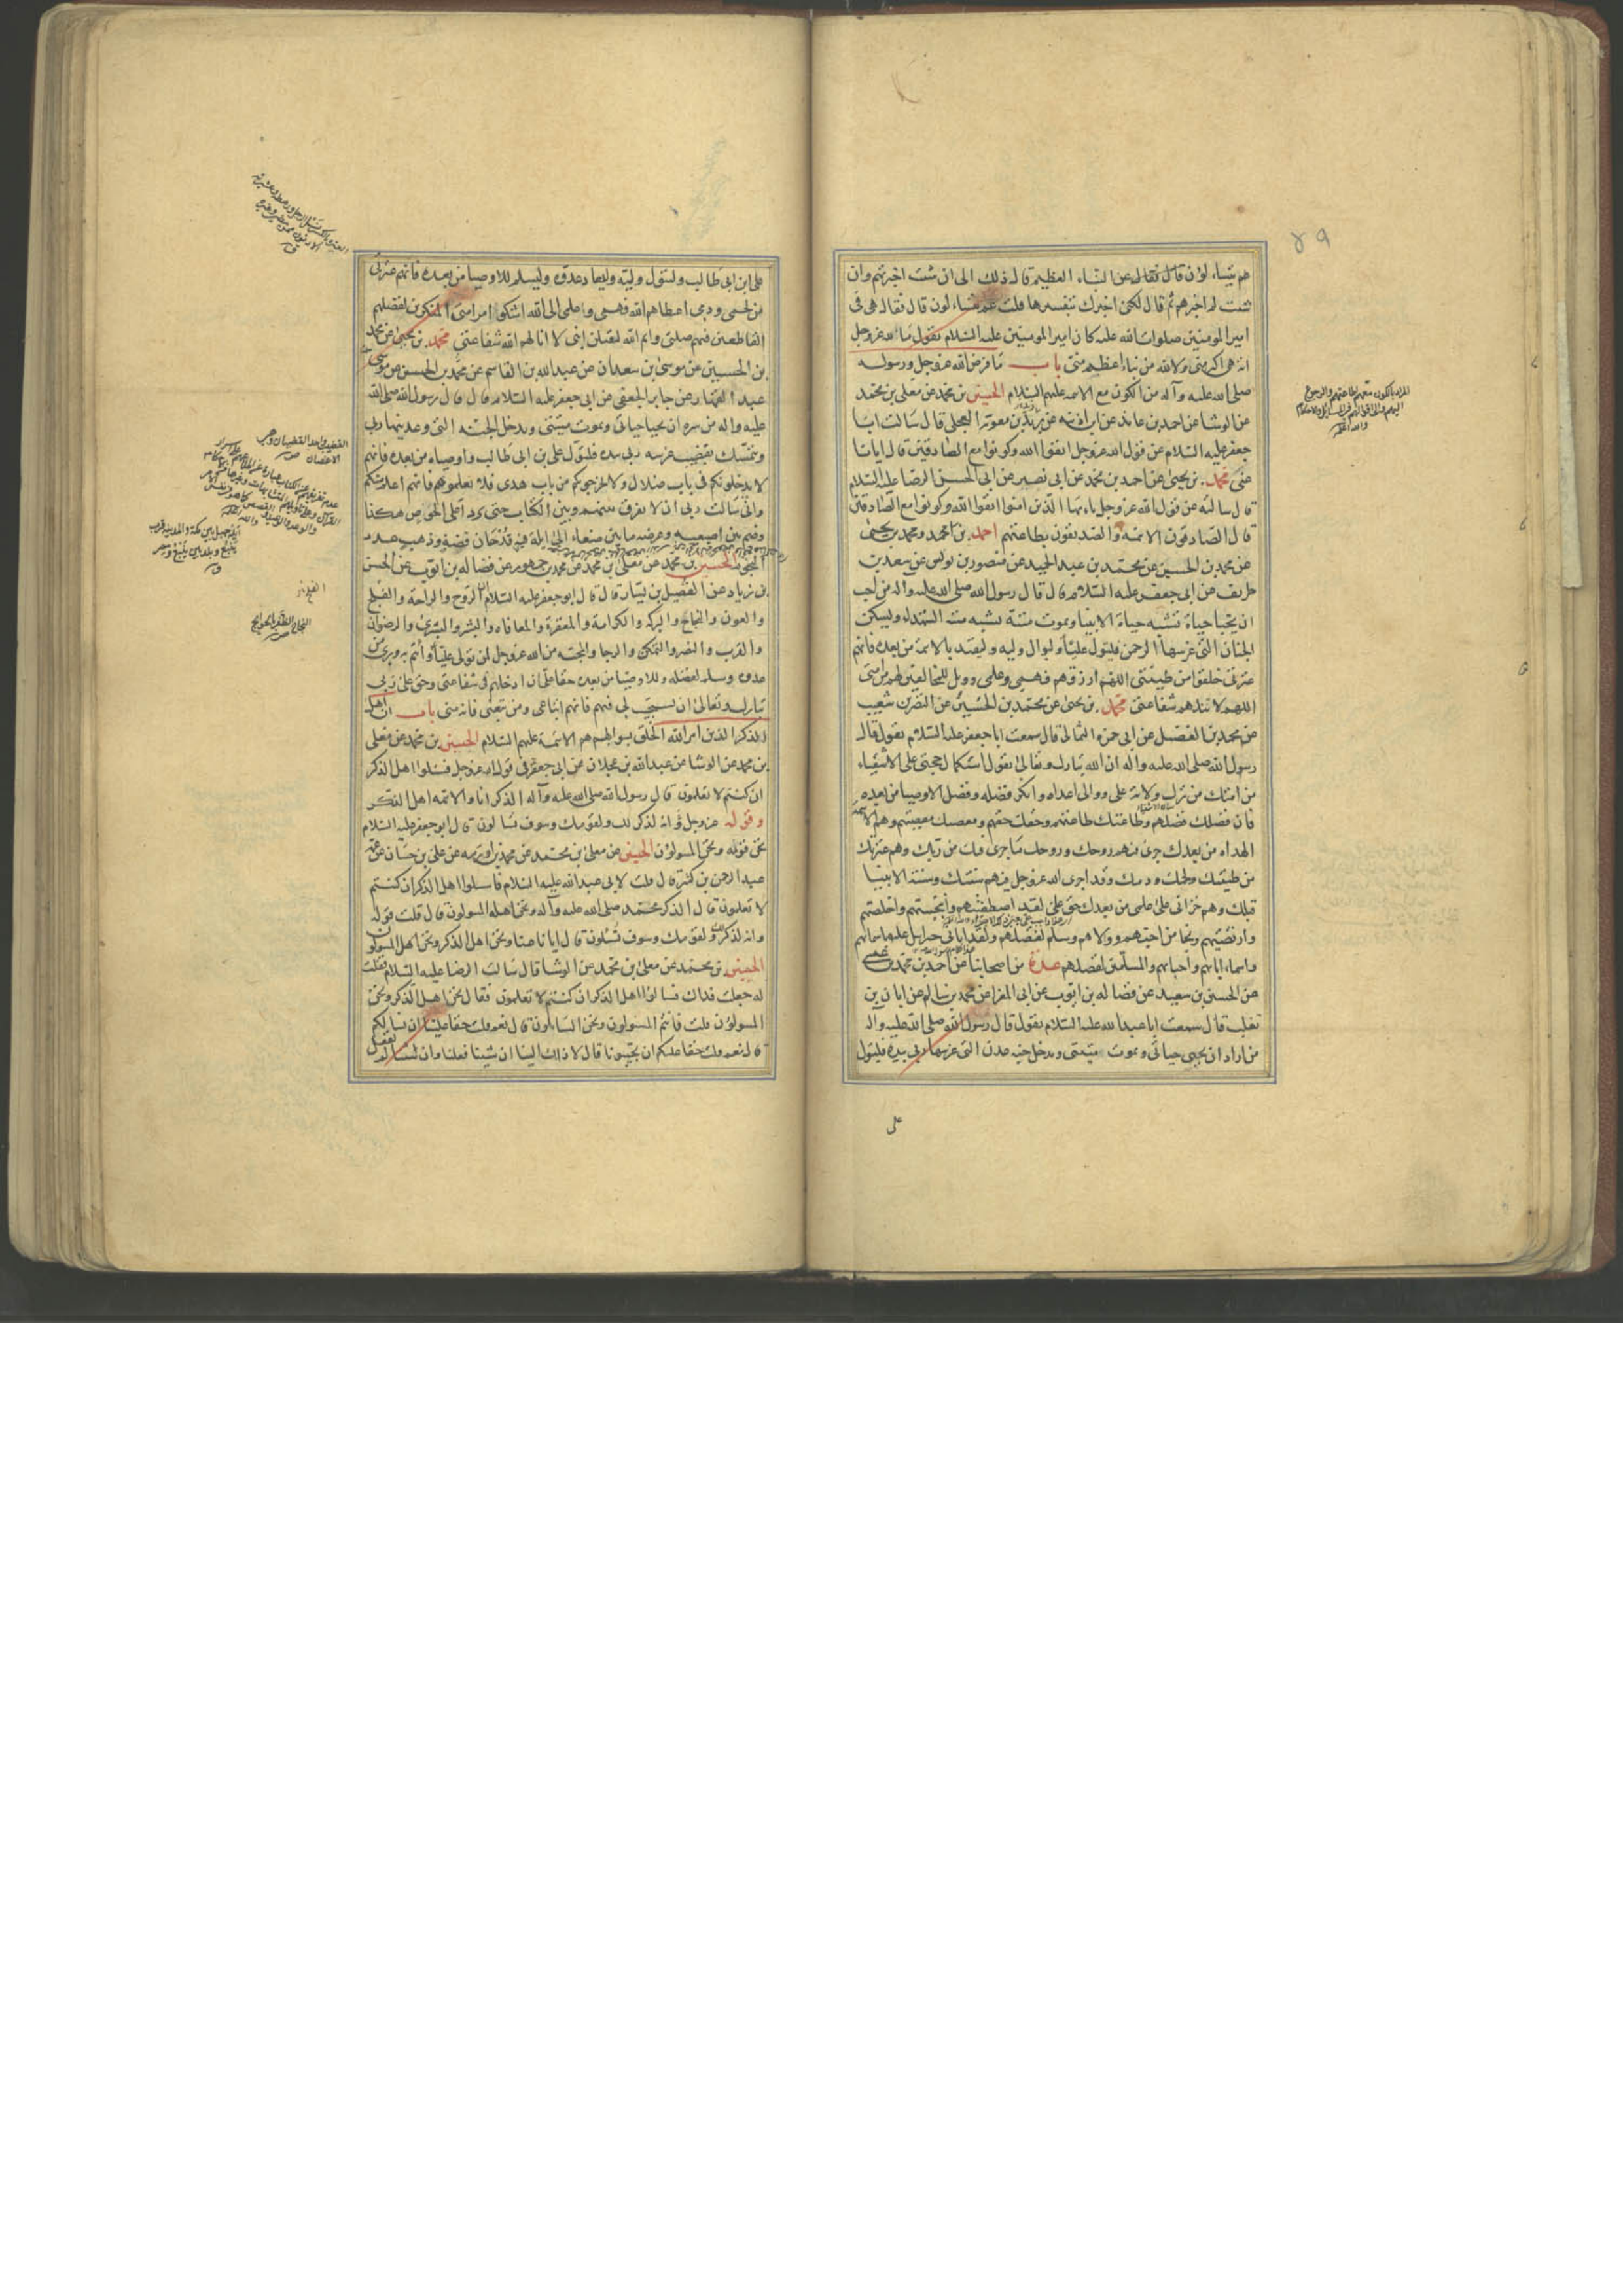 هم يتساءلون قال فقال عن النباء العظيم قال ذلك الى ان شئت اخبرتهم وان
شئت لم اخبرهم ثم قال لكنى اخبرك بتفسيرها قلت عم يتساءلون قال فقال هى فى
امير المومنين صلوات الله عليه كان امير المومنين عليه السلام يقول ما لله عز وجل
اية هى اكبر منى ولا لله من نباء اعظم منى باب ما فرض الله عز وجل ورسوله
صلى الله عليه وآله من الكون مع الائمه عليهم السلام الحسين بن محمد عن معلى بن محمد
عن الوشا عن احمد بن عائذ عن ابن اذينه عن بريد بن معوية العجلى قال سالت ابا
جعفر عليه السلام عن قول الله عز وجل اتقوا الله وكونوا مع الصادقين قال ايانا
عنى محمد بن يحيى عن احمد بن محمد عن ابى نصير عن ابى الحسن الرضا عليه السلام
قال سالته عن قول الله عز وجل ياءيها الذين امنوا اتقوا الله وكونوا مع الصادقين
قال الصادقون الائمة والصديقون بطاعتهم احمد بن محمد ومحمد بن يحيى
عن محمد بن الحسين عن محمد بن عبد الحميد عن منصور بن يونس عن سعد بن
طريف عن ابى جعفر عليه السلام قال قال رسول الله صلى الله عليه واله من احب
ان يحيا حياة تشبه حياة الانبيا ويموت ميتة تشبه ميتة الشهداء ويسكن
الجنان التى غرسها الرحمن فليتول عليا وليوال وليه وليقتد بالائمة من بعده فانهم
عترتى خلقوا من طينتى اللهم ارزقهم فهمى وعلمى وويل للمخالفين لهم من امتى
اللهم لا تنلهم شفاعتى محمد بن يحيى عن محمد بن الحسين عن النضر بن شعيب
عن محمد بن الفضيل عن ابى حمزه الثمالى قال سمعت ابا جعفر عليه السلام يقول قال
رسول الله صلى الله عليه واله ان الله تبارك وتعالى يقول استكمال حجتى على الاشقياء
من امتك من ترك ولاية على ووالى اعداه وانكر فضله وفضل الاوصيا من بعده
فان فضلك فضلهم وطاعتك طاعتهم وحقك حقهم ومعصيتك معصيتهم وهم الائمة
الهداه من بعدك جرى فيهم روحك وروحك ما جرى فيك من ربك وهم عترتك
من طينتك ولحمك ودمك وقد اجرى الله عز وجل فيهم سنتك وسنة الانبيا
قبلك وهم خزانى على علمى من بعدك حق على لقد اصطفيتهم وانتجبتهم واخلصتهم
وارتضيتهم ونجا من احبهم ووالاهم وسلم لفضلهم ولقد اتانى جبرايل عليه السلام باسمائهم
واسماء ابائهم واحبائهم والمسلمين لفضلهم عدة من اصحابنا عن احمد بن محمد بن عيسى
عن الحسين بن سعيد عن فضاله بن ايوب عن ابى المغرا عن محمد بن سالم عن ابان بن
تغلب قال سمعت ابا عبد الله عليه السلام يقول قال رسول الله صلى الله عليه واله
من اراد ان يحيى حياتى ويموت ميتتى ويدخل جنة عدن التى غرسها ربى بيده فليتول
على
على ابن ابى طالب وليتول وليه وليعاد عدوه وليسلم للاوصيا من بعده فانهم عترتى
من لحمى ودمى اعطاهم الله فهمى وعلمى الى الله اشكوا امر امتى المنكرين لفضلهم
القاطعين فيهم صلتى وايم الله ليقتلن ابنى لا انالهم الله شفاعتى محمد بن يحيى عن محمد
بن الحسين عن موسى بن سعدان عن عبد الله بن القاسم عن محمد بن الحسن عن موسى
عبد القهار عن جابر الجعفى عن ابى جعفر عليه السلام قال قال رسول الله صلى الله
عليه واله من سره ان يحيا حياتى ويموت ميتتى ويدخل الجنة التى وعدنيها ربى
ويتمسك بقضيب غرسه ربى بيده فليتول على بن ابى طالب واوصياه من بعده فانهم
لا يدخلونكم فى باب ضلال ولا يخرجوكم من باب هدى فلا تعلموهم فانهم اعلم منكم
وانى سالت ربى ان لا يفرق بينهم وبين الكتاب حتى يردا على الحوض هكذا
وضم بين اصبعيه وعرضه ما بين صنعاء الى ايلة فيه قدحان فضة وذهب عدد
النجوم الحسين بن محمد عن معلى بن محمد عن محمد بن جمهور عن فضاله بن ايوب عن الحسن
بن زياد عن الفضيل بن يسار قال قال ابو جعفر عليه السلام ان الروح والراحة والفلج
والعون والنجاح والبركه والكرامة والمغفرة والمعافاه واليسر والبشرى والرضوان
والقرب والنصر والتمكن والرجا والمحبة من الله عز وجل لمن تولى عليا وائتم به وبرئ من
عدوه وسلم لفضله وللاوصيا من بعده حقا على ان ادخلهم فى شفاعتى وحق على ربى
تبارك وتعالى ان يستجيب لى فيهم فانهم اتباعى ومن تبعنى فانه منى باب ان اهل
الذكر الذين امر الله الخلق بسوالهم هم الائمة عليهم السلام الحسين بن محمد عن معلى
بن محمد عن الوشا عن عبد الله بن عجلان عن ابى جعفر فى قول الله عز وجل فسئلوا اهل الذكر
ان كنتم لا تعلمون قال رسول الله صلى الله عليه وآله الذكر انا والائمه اهل الذكر
وقوله عز وجل وانه لذكر لك ولقومك وسوف تسالون قال ابو جعفر عليه السلام
نحن قومه ونحن المسولون الحسين عن معلى بن محمد عن محمد بن اورمه عن على بن حسان عن عمه
عبد الرحمن بن كثير قال قلت لابى عبد الله عليه السلام فاسلوا اهل الذكر ان كنتم
لا تعلمون قال الذكر محمد صلى الله عليه وآله ونحن اهله المسولون قال قلت قوله
وانه لذكر لك ولقومك وسوف تسئلون قال ايانا عنا ونحن اهل الذكر ونحن اهل المسولون
الحسين بن محمد عن معلى بن محمد عن الوشا قال سالت الرضا عليه السلام فقلت
له جعلت فداك فسالوا اهل الذكر ان كنتم لا تعلمون فقال نحن اهل الذكر ونحن
المسولون قلت فانتم المسولون ونحن السايلون قال نعم قلت حقا علينا ان نسالكم
قال نعم قلت حقا عليكم ان تجيبونا قال لا ذاك الينا ان شينا فعلنا وان شينا لم نفعل